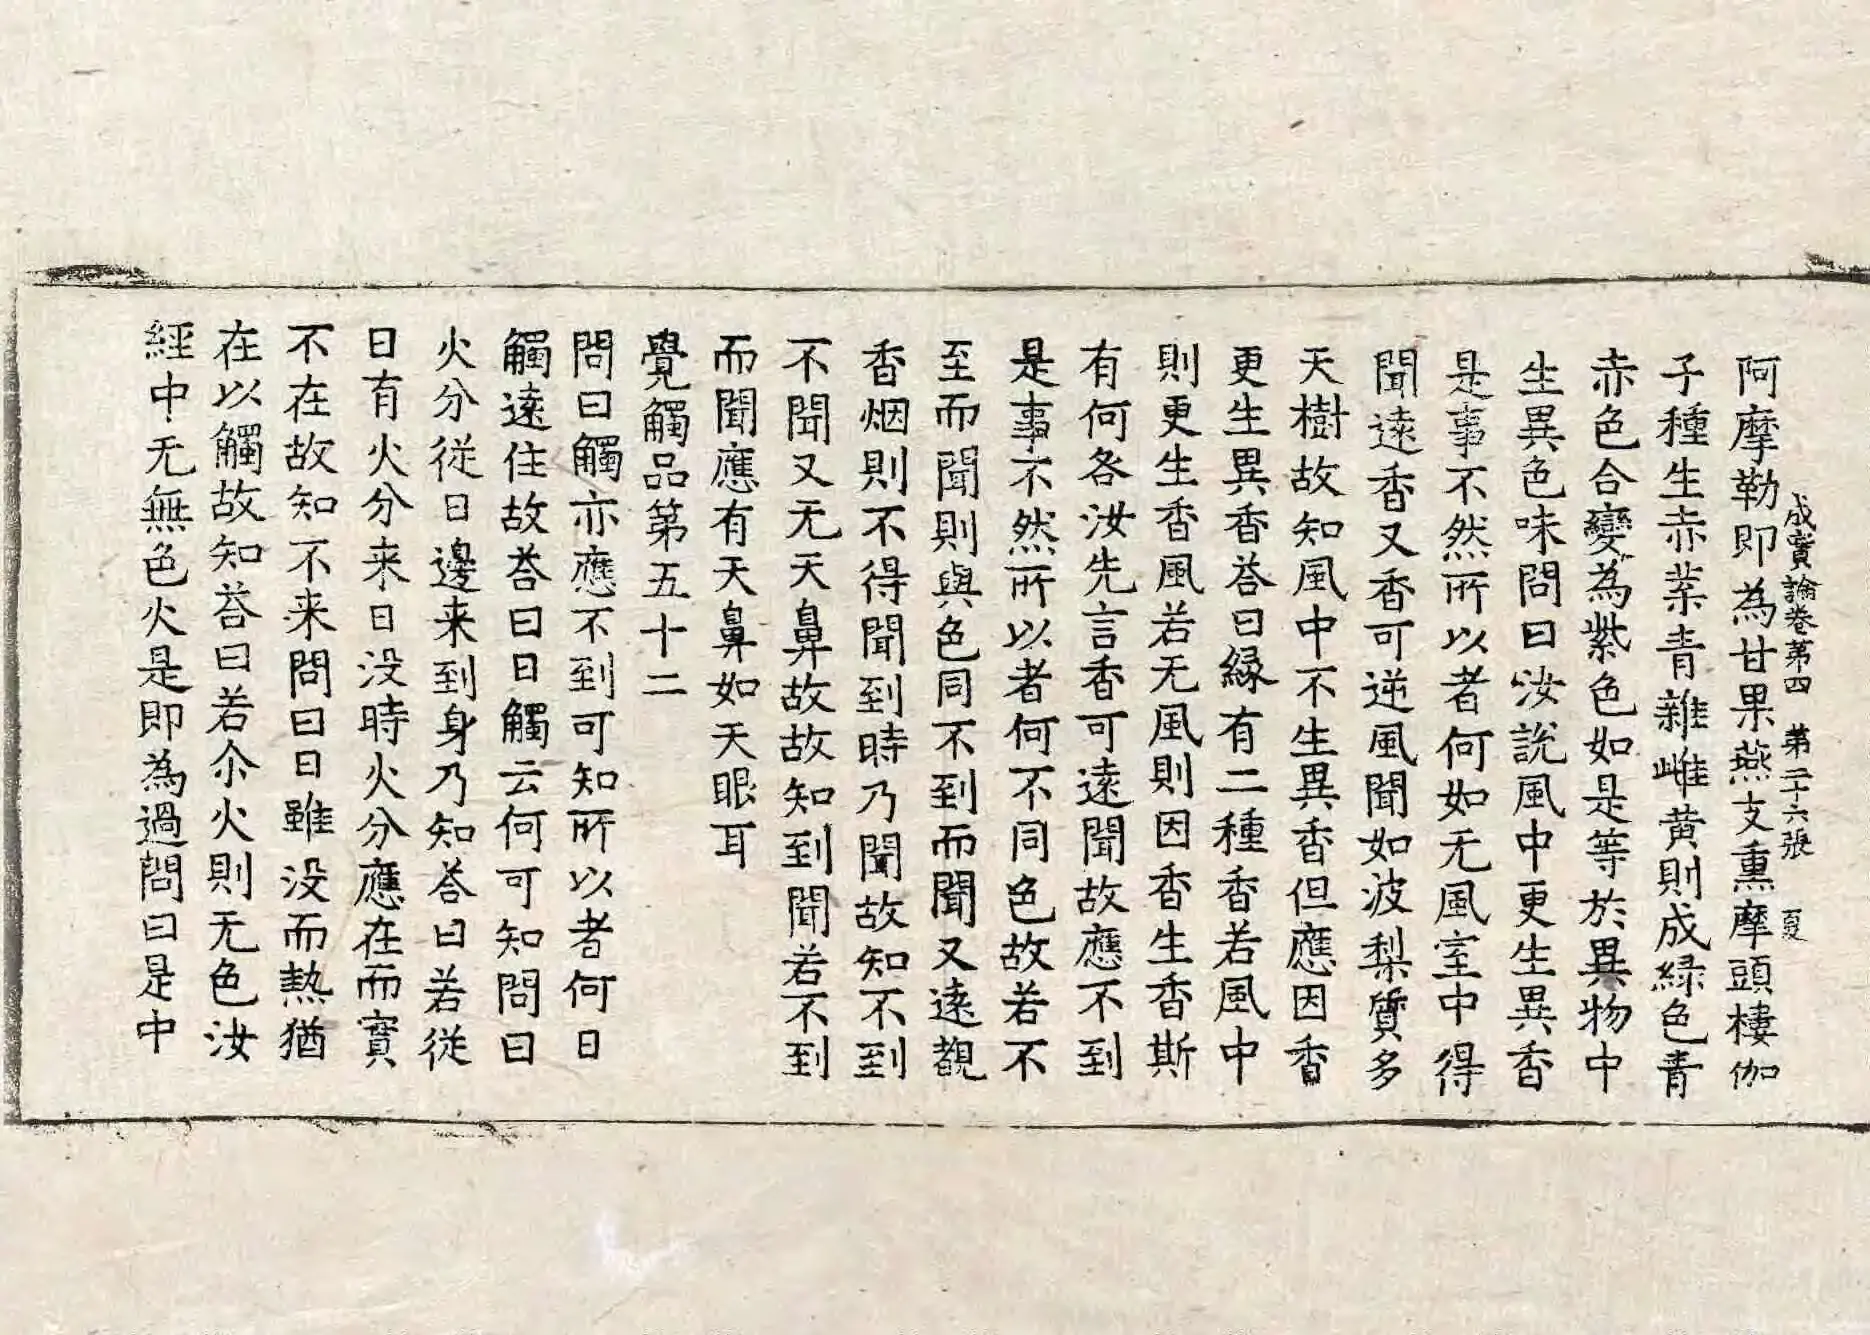 成實論卷第四　第二十六張　夏
阿摩勒即為甘果燕支熏摩頭棲伽
子種生赤菜青雜雌黄則成緑色青
赤色合變為紫色如是等於異物中
生異色味問曰汝說風中更生異香
是事不然所以者何如无風室中得
聞遠香又香可逆風聞如波梨質多
天樹故知風中不生異香但應因香
更生異香荅曰縁有二種香若風中
則更生香風若无風則因香生香斯
有何咎汝先言香可遠聞故應不到
是事不然所以者何不同色故若不
至而聞則與色同不到而聞又遠覩
香烟則不得聞到時乃聞故知不到
不聞又无天鼻故故知到聞若不到
而聞應有天鼻如天眼耳
覺觸品第五十二
問曰觸亦應不到可知所以者何日
觸遠住故荅曰日觸云何可知問曰
火分從日邊来到身乃知荅曰若從
日有火分来日没時火分應在而實
不在故知不来問曰日雖没而熱猶
在以觸故知荅曰若尒火則无色汝
經中无無色火是即為過問曰是中